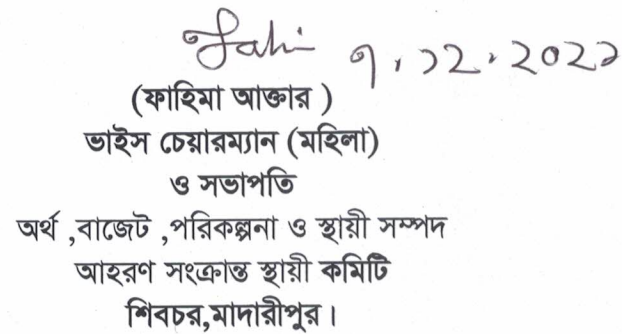 Fahi ৭.১২.২০২১
(ফাহিমা আক্তার )
ভাইস চেয়ারম্যান (মহিলা)
ও সভাপতি
অর্থ ,বাজেট ,পরিকল্পনা ও স্থায়ী সম্পদ
আহরণ সংক্রান্ত স্থায়ী কমিটি
শিবচর,মাদারীপুর।